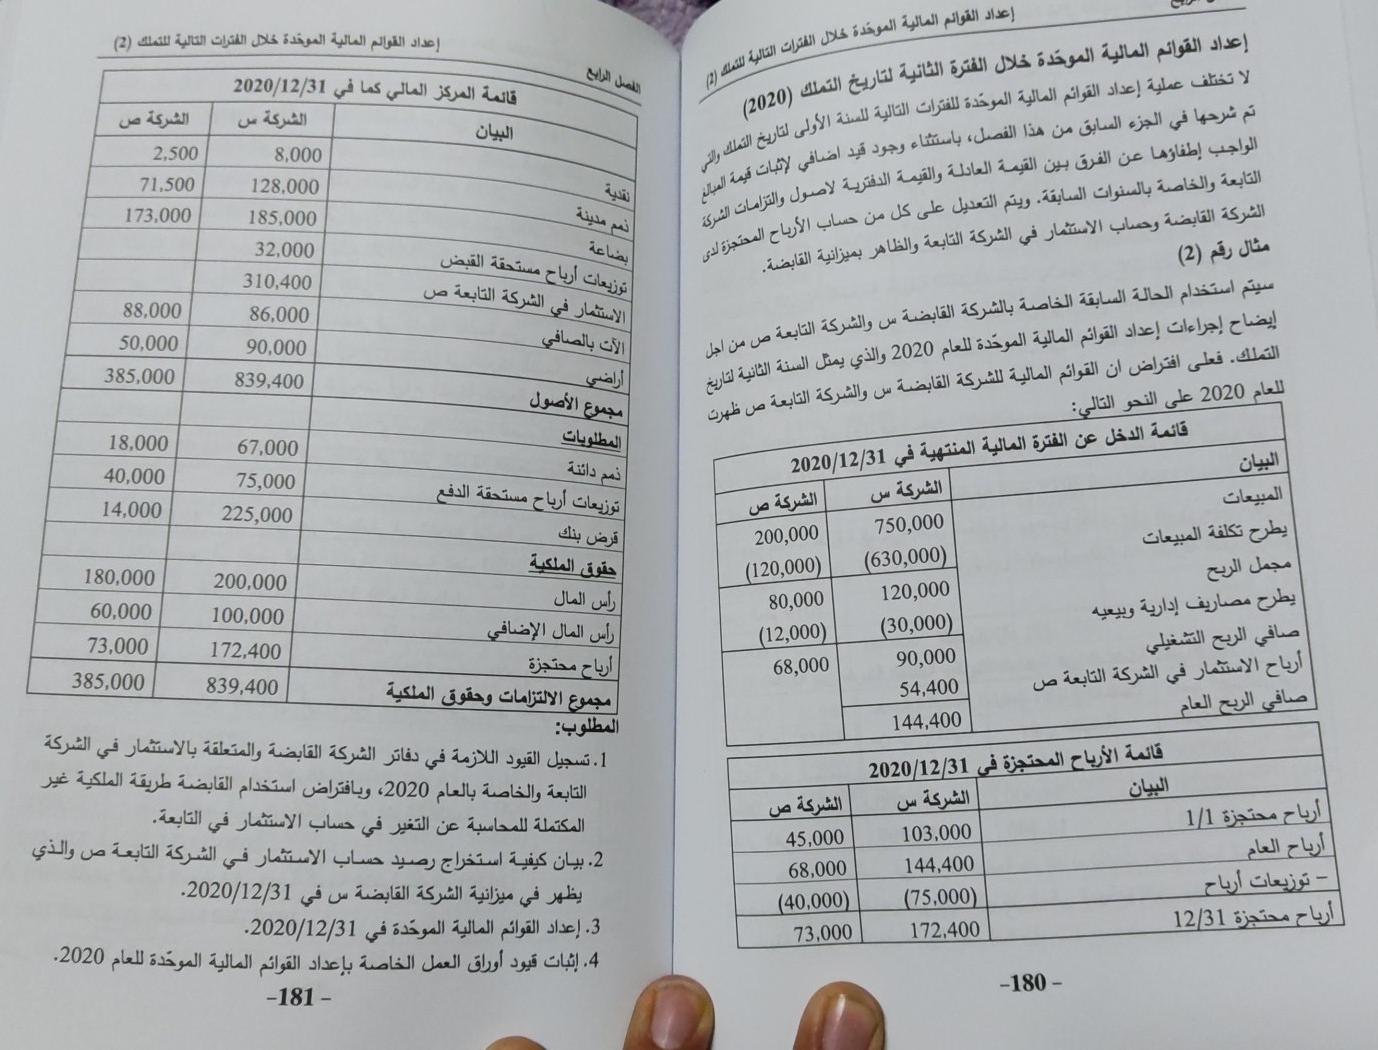 إعداد القوائم المالية الموحّدة خلال الفترات التالية للتملك (2)
إعداد القوائم المالية الموحّدة خلال الفترة الثانية لتاريخ التملك (2020)
لا تختلف عملية إعداد القوائم المالية الموحّدة للفترات التالية للسنة الأولى لتاريخ التملك والتي
تم شرحها في الجزء السابق من هذا الفصل، باستثناء وجود قيد اضافي لإثبات قيمة المبالغ
الواجب إطفاؤها عن الفرق بين القيمة العادلة والقيمة الدفترية لاصول والتزامات الشركة
التابعة والخاصة بالسنوات السابقة. ويتم التعديل على كل من حساب الأرباح المحتجزة لدى
الشركة القابضة وحساب الاستثمار في الشركة التابعة والظاهر بميزانية القابضة.
مثال رقم (2)
سيتم استخدام الحالة السابقة الخاصة بالشركة القابضة س والشركة التابعة ص من اجل
إيضاح إجراءات إعداد القوائم المالية الموحّدة للعام 2020 والذي يمثل السنة الثانية لتاريخ
التملك. فعلى افتراض ان القوائم المالية للشركة القابضة س والشركة التابعة ص ظهرت
للعام 2020 على النحو التالي:
قائمة الدخل عن الفترة المالية المنتهية في 2020/12/31
البيان الشركة س الشركة ص
المبيعات 750,000 200,000
يطرح تكلفة المبيعات (630,000) (120,000)
مجمل الربح 120,000 80,000
يطرح مصاريف إدارية وبيعيه (30,000) (12,000)
صافي الربح التشغيلي 90,000 68,000
أرباح الاستثمار في الشركة التابعة ص 54,400
صافي الربح العام 144,400
قائمة الأرباح المحتجزة في 2020/12/31
البيان الشركة س الشركة ص
أرباح محتجزة 1/1 103,000 45,000
أرباح العام 144,400 68,000
– توزيعات أرباح (75,000) (40,000)
أرباح محتجزة 12/31 172,400 73,000
-180 -
الفصل الرابع
إعداد القوائم المالية الموحّدة خلال الفترات التالية للتملك (2)
قائمة المركز المالي كما في 2020/12/31
البيان الشركة س الشركة ص
نقدية 8,000 2,500
ذمم مدينة 128,000 71,500
بضاعة 185,000 173,000
توزيعات أرباح مستحقة القبض 32,000
الاستثمار في الشركة التابعة ص 310,400
الآت بالصافي 86,000 88,000
أراضي 90,000 50,000
مجموع الأصول 839,400 385,000
المطلوبات
ذمم دائنة 67,000 18,000
توزيعات أرباح مستحقة الدفع 75,000 40,000
قرض بنك 225,000 14,000
حقوق الملكية
رأس المال 200,000 180,000
رأس المال الإضافي 100,000 60,000
أرباح محتجزة 172,400 73,000
مجموع الالتزامات وحقوق الملكية 839,400 385,000
المطلوب:
1. تسجيل القيود اللازمة في دفاتر الشركة القابضة والمتعلقة بالاستثمار في الشركة
التابعة والخاصة بالعام 2020، وبافتراض استخدام القابضة طريقة الملكية غير
المكتملة للمحاسبة عن التغير في حساب الاستثمار في التابعة.
2. بيان كيفية استخراج رصيد حساب الاستثمار في الشركة التابعة ص والذي
يظهر في ميزانية الشركة القابضة س في 2020/12/31.
3. إعداد القوائم المالية الموحّدة في 2020/12/31.
4. إثبات قيود أوراق العمل الخاصة بإعداد القوائم المالية الموحّدة للعام 2020.
-181 -